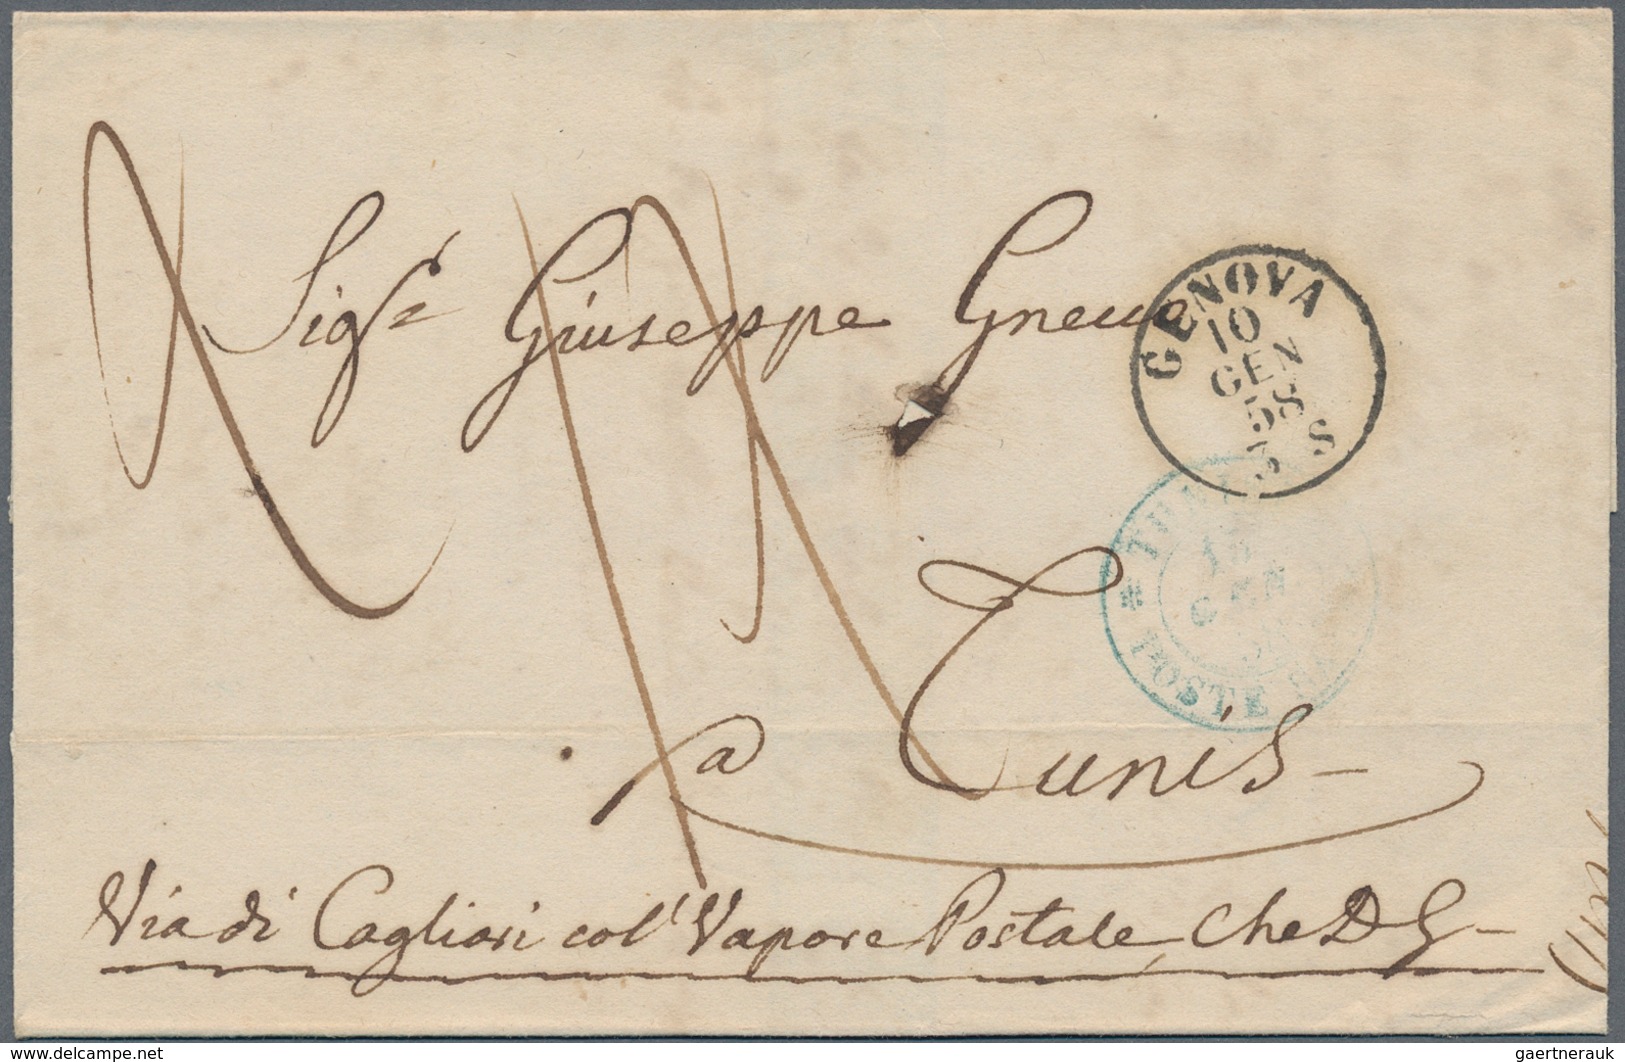 Sig.r Giuseppe Gnecco
a Tunis
Via di Cagliari col' Vapore Postale, che D G
GENOVA
10
GEN
58
3 S
POSTE
GEN
www.delcampe.net
gaertnerauk